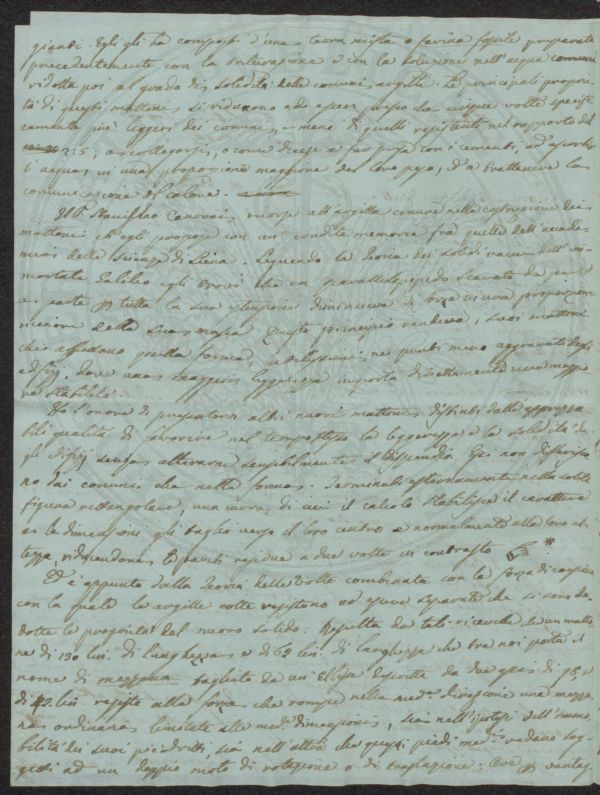 giandi. Egli gli ha composti d'una terra mista o farina fossile preparata
precedentemente con la e con la soluzione nell'acqua comune
ridotta poi al grado di solidità delle comuni argille. Le principali proprie
tà di questi mattoni si riducono ad esser, presso che cinque volte specifi
camente più leggeri dei comuni, e meno di quelli resistenti nel rapporto del
2:5; a e come a far presa con i cementi, ad assorbir
l'acqua in una proporzione maggiore del loro peso, ed a trattenere la
comunicazione del calore.
Il P. Stanislao Canovai ricorse all'argilla comune nella costruzione dei
mattoni ch'egli propose con un' erudita memoria fra quelle dell'accade
mia delle Scienze di Siena. Seguendo la teoria dei solidi vacui dell'im
mortale Galileo egli trovò che un parallelepipedo scavato da parte
a parte per tutta la sua estensione diminuiva di forza in una proporzione
minore della sua massa. Questo principio rendeva i suoi mattoni
che affettano quella forma, nei punti meno aggravati degli
edifizj, dove una maggiore leggerezza importa direttamente una maggio
re stabilità.
Ho l'onore di presentarvi altri nuovi mattoni distinti dalle apprezza
bili qualità di favorire nel tempo stesso la leggerezza e la solidità de
gli edifizj senza alterarne sensibilmente il dispendio. Essi non differisco
no dai comuni che nella forma. Terminati esternamente nella solita
figura rettangolare, una curva di cui il calcolo stabilisce il carattere
e le dimensioni gli taglia verso il loro centro e normalmente alla loro al
tezza, riducendone le pareti residue a due volte in contrasto *
Ed è appunto dalla teoria delle volte combinata con la forza di coesione
con la quale le argille cotte resistono ad essere separate che si sono de
dotte le proprietà del nuovo solido. Risulta da tali ricerche che un matto
ne di 130 lin. di lunghezza e di 62 lin. di larghezza che tra noi porta il
nome di mezzana tagliato da un'Ellisse descritta da due assi di 98, e
di lin. resiste alla forza che rompe nella med.ª direzione una mezza
na ordinaria limitata alle med.e dimensioni, sia nell'ipotesi dell'immo
bilità dei suoi piedritti, sia nell'altra che questi piedi med.mi vadano sog
getti ad un doppio moto di rotazione o di traslazione. Ove per vantag